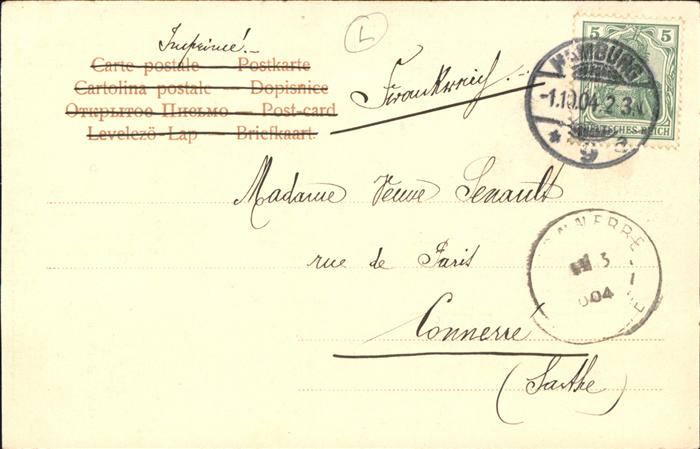 Imprimé!
L
Carte postale — Postkarte
Cartolina postale — Dopisnice
Открытое Письмо — Post-card
Levelezö-Lap — Briefkaart
Frankreich
5 5
DEUTSCHES REICH
HAMBURG
-1.10.04. 2-3 N
* 9 a
Madame Veuve Senault
rue de Paris
Connerré
(Sarthe)
CONNERRE
3
04